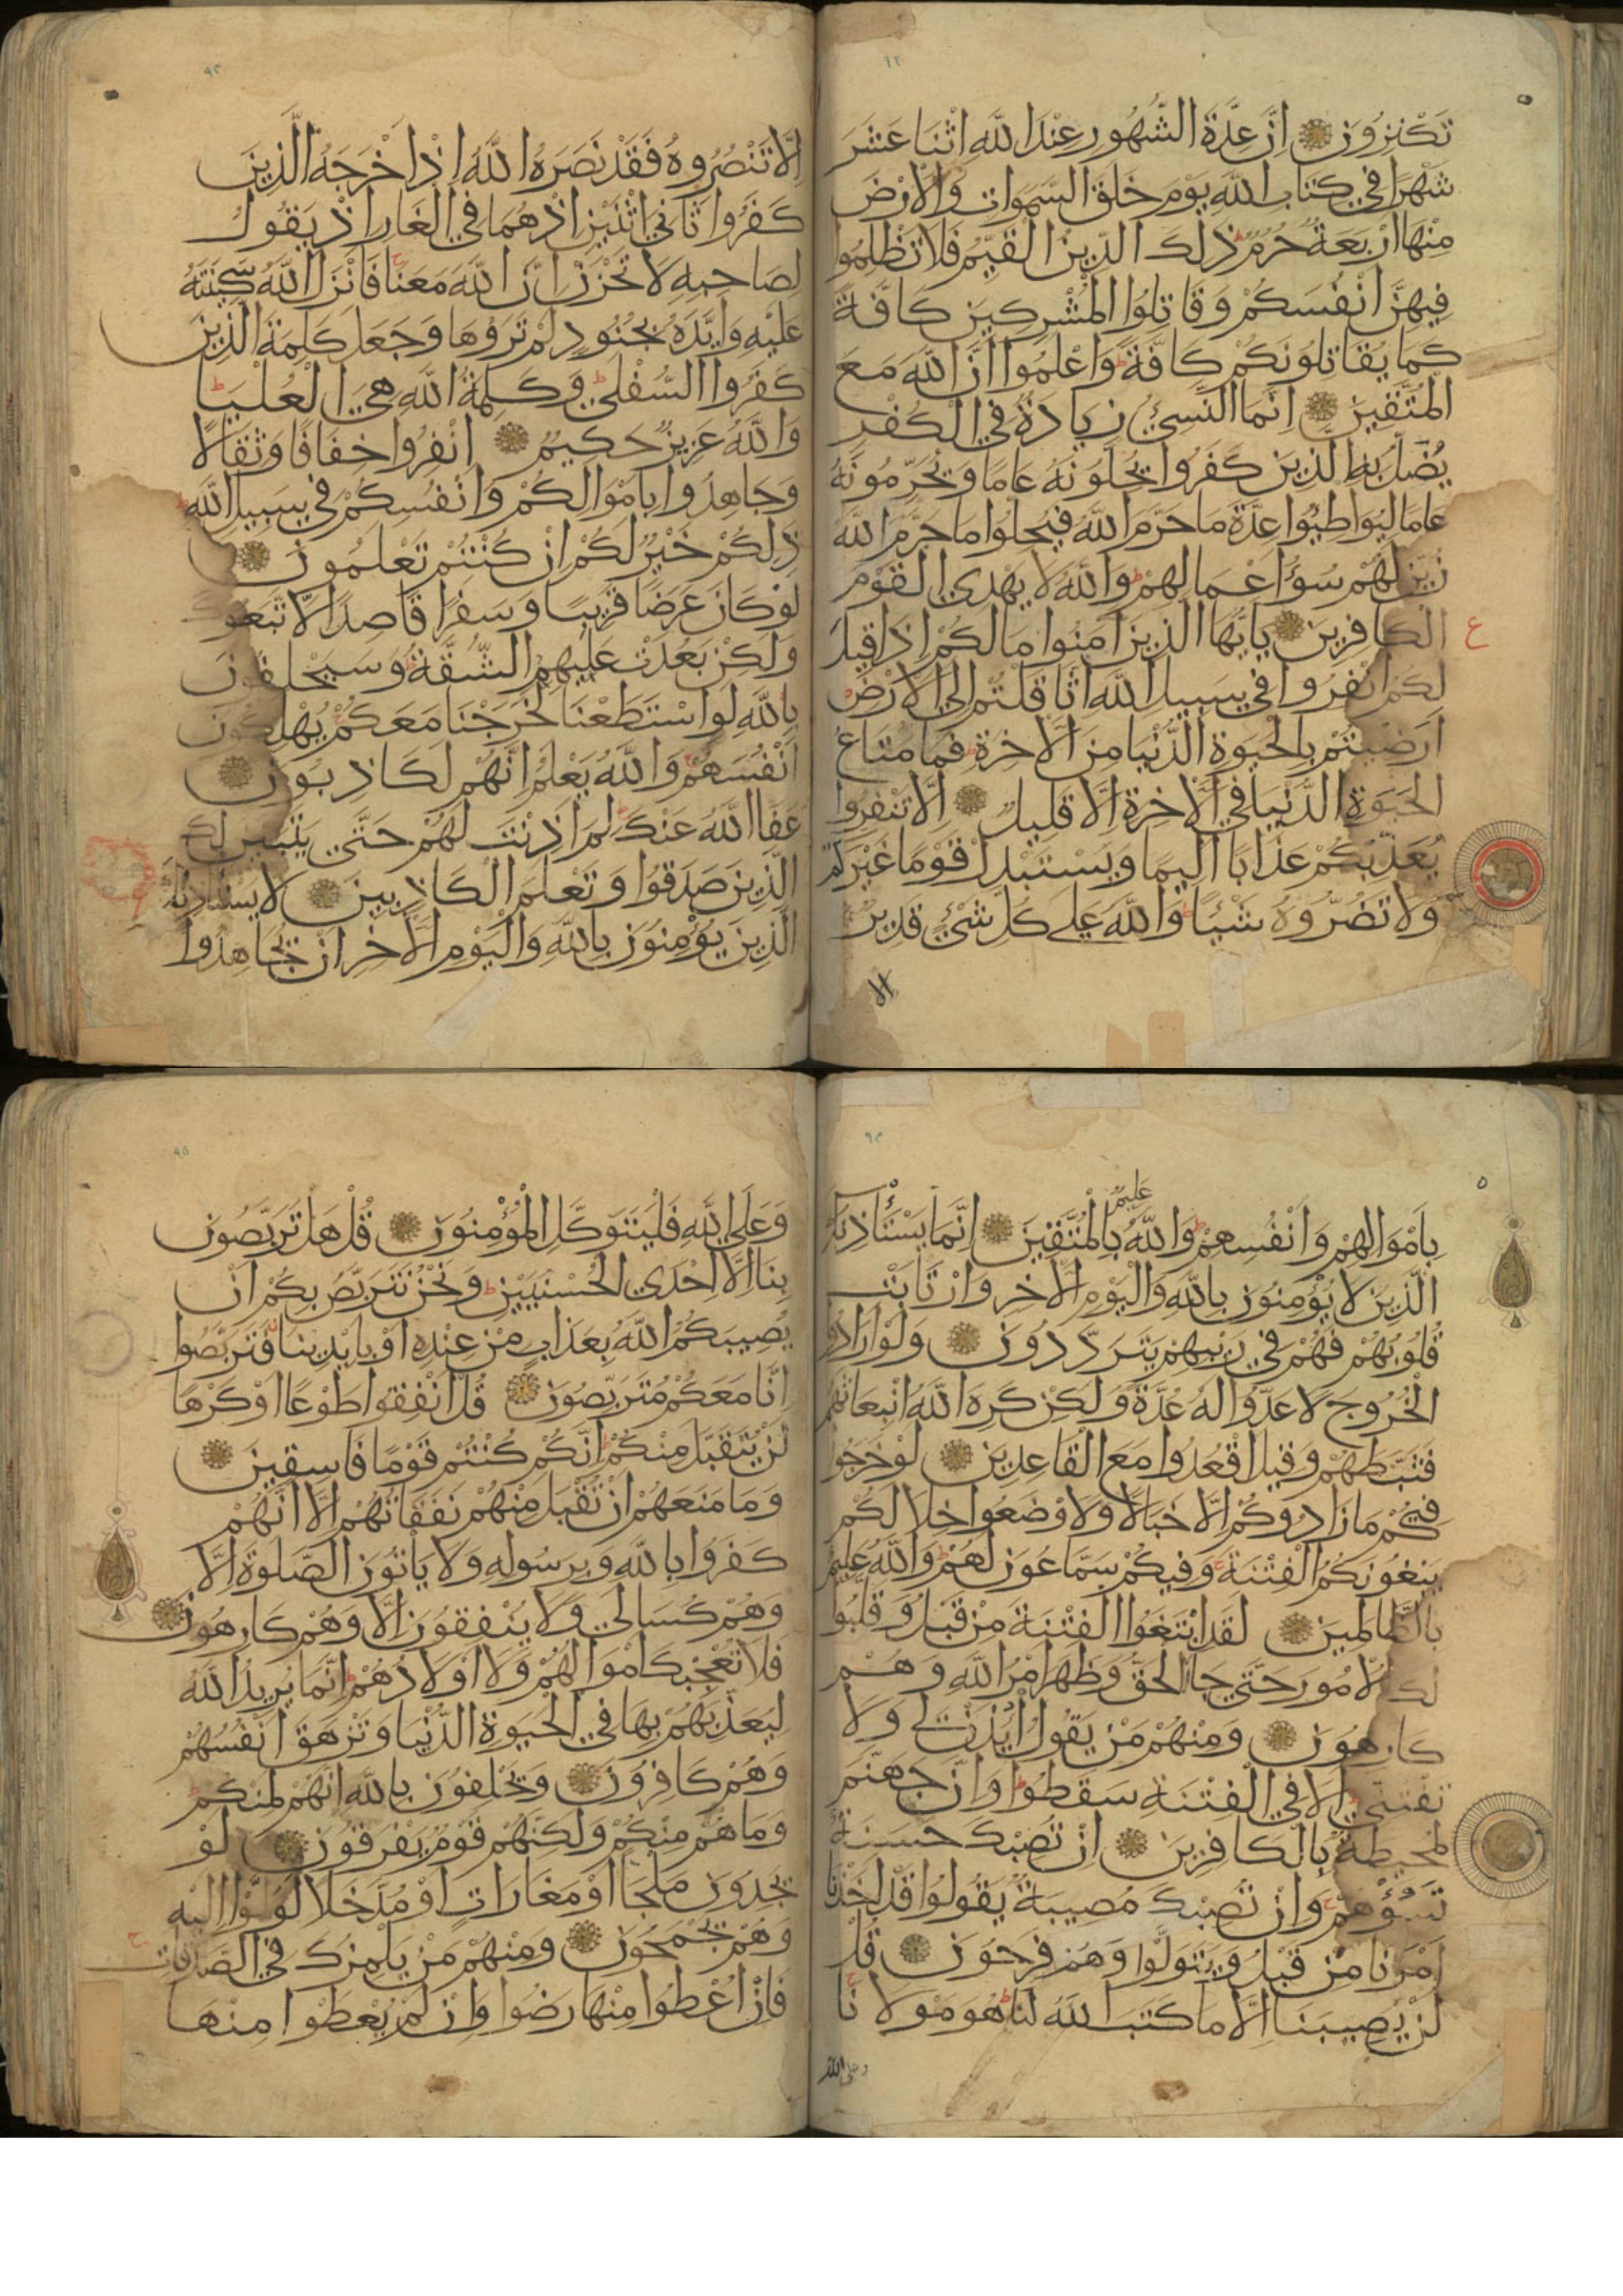 ٩٢
تَكْنِزُونَ اِنَّ عِدَّةَ الشُّهُورِ عِنْدَ اللهِ اثْنَا عَشَرَ
شَهْرًا فِي كِتَابِ اللهِ يَوْمَ خَلَقَ السَّمَوَاتِ وَالْاَرْضَ
مِنْهَا اَرْبَعَةٌ حُرُمٌ ط ذَلِكَ الدِّينُ الْقَيِّمُ فَلَا تَظْلِمُوا
فِيهِنَّ اَنْفُسَكُمْ وَقَاتِلُوا الْمُشْرِكِينَ كَافَّةً
كَمَا يُقَاتِلُونَكُمْ كَافَّةً ط وَاعْلَمُوا اَنَّ اللهَ مَعَ
الْمُتَّقِينَ اِنَّمَا النَّسِيءُ زِيَادَةٌ فِي الْكُفْرِ
يُضَلُّ بِهِ الَّذِينَ كَفَرُوا يُحِلُّونَهُ عَامًا وَيُحَرِّمُونَهُ
عَامًا لِيُوَاطِئُوا عِدَّةَ مَا حَرَّمَ اللهُ فَيُحِلُّوا مَا حَرَّمَ اللهُ
زُيِّنَ لَهُمْ سُوءُ اَعْمَالِهِمْ ط وَاللهُ لَا يَهْدِي الْقَوْمَ
الْكَافِرِينَ يَا يُّهَا الَّذِينَ اٰمَنُوا مَا لَكُمْ اِذَا قِيلَ
ع
لَكُمُ انْفِرُوا فِي سَبِيلِ اللهِ اثَّاقَلْتُمْ اِلَى الْاَرْضِ ط
اَرَضِيتُمْ بِالْحَيَوةِ الدُّنْيَا مِنَ الْاٰخِرَةِ ط فَمَا مَتَاعُ
الْحَيَوةِ الدُّنْيَا فِي الْاٰخِرَةِ اِلَّا قَلِيلٌ اِلَّا تَنْفِرُوا
يُعَذِّبْكُمْ عَذَابًا اَلِيمًا وَيَسْتَبْدِلْ قَوْمًا غَيْرَكُمْ
وَلَا تَضُرُّوهُ شَيْئًا ط وَاللهُ عَلَى كُلِّ شَيْءٍ قَدِيرٌ
الا
٩٣
اِلَّا تَنْصُرُوهُ فَقَدْ نَصَرَهُ اللهُ اِذْ اَخْرَجَهُ الَّذِينَ
كَفَرُوا ثَانِيَ اثْنَيْنِ اِذْ هُمَا فِي الْغَارِ اِذْ يَقُولُ
لِصَاحِبِهِ لَا تَحْزَنْ اِنَّ اللهَ مَعَنَا ج فَاَنْزَلَ اللهُ سَكِينَتَهُ
عَلَيْهِ وَاَيَّدَهُ بِجُنُودٍ لَمْ تَرَوْهَا وَجَعَلَ كَلِمَةَ الَّذِينَ
كَفَرُوا السُّفْلَى ط وَكَلِمَةُ اللهِ هِيَ الْعُلْيَا ط
وَاللهُ عَزِيزٌ حَكِيمٌ اِنْفِرُوا خِفَافًا وَثِقَالًا
وَجَاهِدُوا بِاَمْوَالِكُمْ وَاَنْفُسِكُمْ فِي سَبِيلِ اللهِ ط
ذَلِكُمْ خَيْرٌ لَكُمْ اِنْ كُنْتُمْ تَعْلَمُونَ
لَوْ كَانَ عَرَضًا قَرِيبًا وَسَفَرًا قَاصِدًا لَاتَّبَعُوكَ
وَلَكِنْ بَعُدَتْ عَلَيْهِمُ الشُّقَّةُ ط وَسَيَحْلِفُونَ
بِاللهِ لَوِ اسْتَطَعْنَا لَخَرَجْنَا مَعَكُمْ ج يُهْلِكُونَ
اَنْفُسَهُمْ ج وَاللهُ يَعْلَمُ اِنَّهُمْ لَكَاذِبُونَ
عَفَا اللهُ عَنْكَ ج لِمَ اَذِنْتَ لَهُمْ حَتَّى يَتَبَيَّنَ لَكَ
الَّذِينَ صَدَقُوا وَتَعْلَمَ الْكَاذِبِينَ لَا يَسْتَاْذِنُكَ
الَّذِينَ يُؤْمِنُونَ بِاللهِ وَالْيَوْمِ الْاٰخِرِ اَنْ يُجَاهِدُوا
٩٤
عَلِيمٌ
بِاَمْوَالِهِمْ وَاَنْفُسِهِمْ ط وَاللهُ بِالْمُتَّقِينَ اِنَّمَا يَسْتَاْذِنُكَ
الَّذِينَ لَا يُؤْمِنُونَ بِاللهِ وَالْيَوْمِ الْاٰخِرِ وَارْتَابَتْ
قُلُوبُهُمْ فَهُمْ فِي رَيْبِهِمْ يَتَرَدَّدُونَ وَلَوْ اَرَادُوا
الْخُرُوجَ لَاَعَدُّوا لَهُ عُدَّةً وَلَكِنْ كَرِهَ اللهُ انْبِعَاثَهُمْ
فَثَبَّطَهُمْ وَقِيلَ اقْعُدُوا مَعَ الْقَاعِدِينَ لَوْ خَرَجُوا
فِيكُمْ مَا زَادُوكُمْ اِلَّا خَبَالًا وَلَاَوْضَعُوا خِلَالَكُمْ
يَبْغُونَكُمُ الْفِتْنَةَ ج وَفِيكُمْ سَمَّاعُونَ لَهُمْ ط وَاللهُ عَلِيمٌ
بِالظَّالِمِينَ لَقَدِ ابْتَغَوُا الْفِتْنَةَ مِنْ قَبْلُ وَقَلَّبُوا
لَكَ الْاُمُورَ حَتَّى جَا الْحَقُّ وَظَهَرَ اَمْرُ اللهِ وَهُمْ
كَارِهُونَ وَمِنْهُمْ مَنْ يَقُولُ ائْذَنْ لِي وَلَا
تَفْتِنِّي ط اَلَا فِي الْفِتْنَةِ سَقَطُوا ط وَاِنَّ جَهَنَّمَ
لَمُحِيطَةٌ بِالْكَافِرِينَ اِنْ تُصِبْكَ حَسَنَةٌ
تَسُؤْهُمْ ج وَاِنْ تُصِبْكَ مُصِيبَةٌ يَقُولُوا قَدْ اَخَذْنَا
اَمْرَنَا مِنْ قَبْلُ وَيَتَوَلَّوْا وَهُمْ فَرِحُونَ قُلْ
لَنْ يُصِيبَنَا اِلَّا مَا كَتَبَ اللهُ لَنَا ج هُوَ مَوْلَانَا ج
وعلى الله
٩٥
وَعَلَى اللهِ فَلْيَتَوَكَّلِ الْمُؤْمِنُونَ قُلْ هَلْ تَرَبَّصُونَ
بِنَا اِلَّا اِحْدَى الْحُسْنَيَيْنِ ط وَنَحْنُ نَتَرَبَّصُ بِكُمْ اَنْ
يُصِيبَكُمُ اللهُ بِعَذَابٍ مِنْ عِنْدِهِ اَوْ بِاَيْدِينَا فَتَرَبَّصُوا
اِنَّا مَعَكُمْ مُتَرَبِّصُونَ قُلْ اَنْفِقُوا طَوْعًا اَوْ كَرْهًا
لَنْ يُتَقَبَّلَ مِنْكُمْ ط اِنَّكُمْ كُنْتُمْ قَوْمًا فَاسِقِينَ
وَمَا مَنَعَهُمْ اَنْ تُقْبَلَ مِنْهُمْ نَفَقَاتُهُمْ اِلَّا اَنَّهُمْ
كَفَرُوا بِاللهِ وَبِرَسُولِهِ وَلَا يَاْتُونَ الصَّلَوةَ اِلَّا
وَهُمْ كُسَالَى وَلَا يُنْفِقُونَ اِلَّا وَهُمْ كَارِهُونَ
فَلَا تُعْجِبْكَ اَمْوَالُهُمْ وَلَا اَوْلَادُهُمْ ط اِنَّمَا يُرِيدُ اللهُ
لِيُعَذِّبَهُمْ بِهَا فِي الْحَيَوةِ الدُّنْيَا وَتَزْهَقَ اَنْفُسُهُمْ
وَهُمْ كَافِرُونَ وَيَحْلِفُونَ بِاللهِ اِنَّهُمْ لَمِنْكُمْ ط
وَمَا هُمْ مِنْكُمْ وَلَكِنَّهُمْ قَوْمٌ يَفْرَقُونَ لَوْ
يَجِدُونَ مَلْجَاً اَوْ مَغَارَاتٍ اَوْ مُدَّخَلًا لَوَلَّوْا اِلَيْهِ
وَهُمْ يَجْمَحُونَ وَمِنْهُمْ مَنْ يَلْمِزُكَ فِي الصَّدَقَاتِ ج
فَاِنْ اُعْطُوا مِنْهَا رَضُوا وَاِنْ لَمْ يُعْطَوْا مِنْهَا